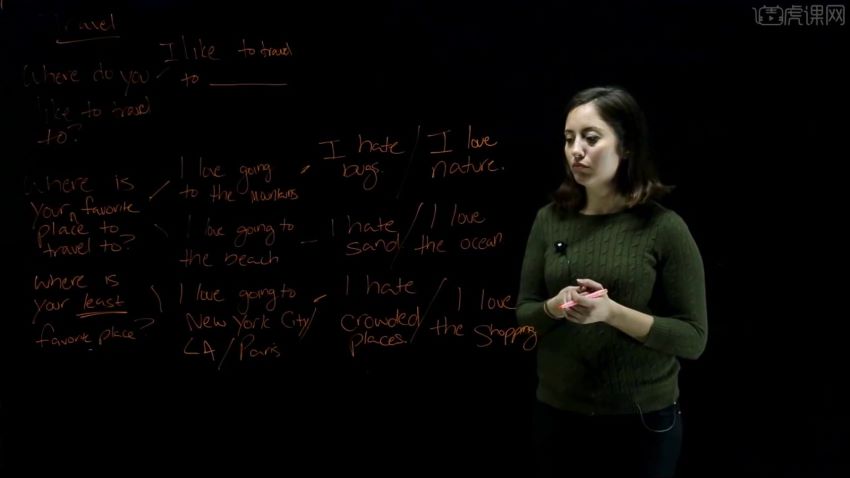 虎课网
Travel
Where do you
like to travel
to?
I like to travel
to
Where is
your favorite
place to
travel to?
I love going
to the Mountains
I hate
bugs.
/
I love
nature.
I love going to
the beach
I hate
sand
/
I love
the ocean
where is
your least
favorite place?
I love going to
New York City/
LA / Paris
I hate
crowded
places.
/
I love
the shopping